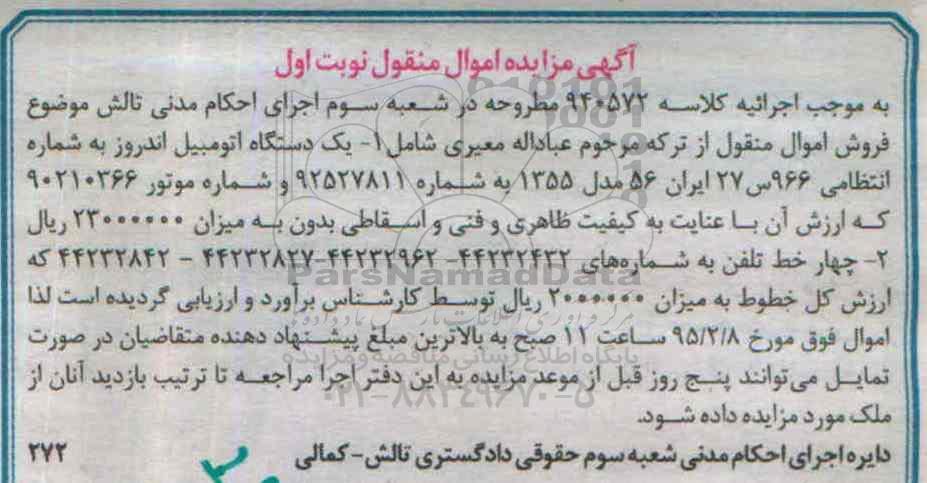 آگهی مزایده اموال منقول نوبت اول
به موجب اجرائیه کلاسه ۹۴۰۵۷۲ مطروحه در شعبه سوم اجرای احکام مدنی تالش موضوع
فروش اموال منقول از ترکه مرحوم عباداله معیری شامل ۱- یک دستگاه اتومبیل اندروز به شماره
انتظامی ۹۶۶س۲۷ ایران ۵۶ مدل ۱۳۵۵ به شماره ۹۲۵۲۷۸۱۱ و شماره موتور ۹۰۲۱۰۳۶۶
که ارزش آن با عنایت به کیفیت ظاهری و فنی و اسقاطی بدون به میزان ۲۳۰۰۰۰۰۰ ریال
۲- چهار خط تلفن به شماره‌های ۴۴۲۳۲۴۳۲- ۴۴۲۳۲۹۶۲-۴۴۲۳۲۸۲۷ - ۴۴۲۳۲۸۴۲ که
ParsNamadData
ارزش کل خطوط به میزان ۲۰۰۰۰۰۰ ریال توسط کارشناس برآورد و ارزیابی گردیده است لذا
اموال فوق مورخ ۹۵/۲/۸ ساعت ۱۱ صبح به بالاترین مبلغ پیشنهاد دهنده متقاضیان در صورت
پایگاه اطلاع رسانی مناقصه و مزایده
تمایل می‌توانند پنج روز قبل از موعد مزایده به این دفتر اجرا مراجعه تا ترتیب بازدید آنان از
۰۲۱-۸۸۳۴۹۶۷۰-۵
ملک مورد مزایده داده شود.
دایره اجرای احکام مدنی شعبه سوم حقوقی دادگستری تالش- کمالی
۲۷۲